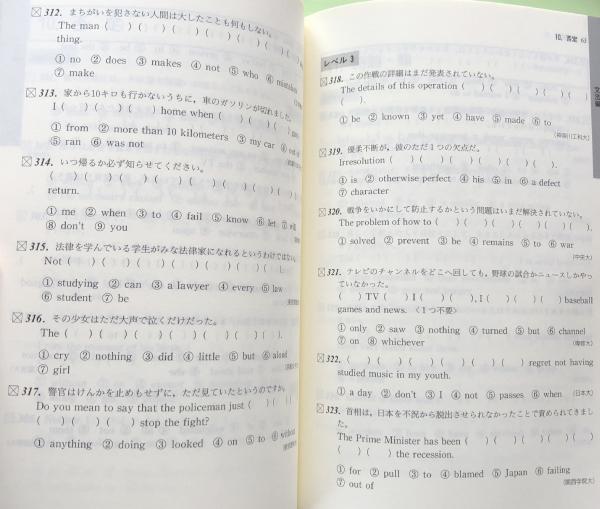 312. まちがいを犯さない人間は大したことも何もしない。
The man (　)(　)(　)(　)(　)(　)(　)
thing.
① no ② does ③ makes ④ not ⑤ who ⑥ mistakes
⑦ make
313. 家から10キロも行かないうちに，車のガソリンが切れました。
I (　)(　) home when (　)(　)(　)
① from ② more than 10 kilometers ③ my car ④ out of
⑤ ran ⑥ was not
314. いつ帰るか必ず知らせてください。
(　)(　)(　)(　)(　)(　)(　)(　)(　)
return.
① me ② when ③ to ④ fail ⑤ know ⑥ let ⑦ will
⑧ don't ⑨ you
315. 法律を学んでいる学生がみな法律家になれるというわけではない。
Not (　)(　)(　)(　)(　)(　)(　)
① studying ② can ③ a lawyer ④ every ⑤ law
⑥ student ⑦ be
316. その少女はただ大声で泣くだけだった。
The (　)(　)(　)(　)(　)(　)(　).
① cry ② nothing ③ did ④ little ⑤ but ⑥ aloud
⑦ girl
317. 警官はけんかを止めもせずに，ただ見ていたというのですか。
Do you mean to say that the policeman just (　)(　)
(　)(　)(　)(　) stop the fight?
① anything ② doing ③ looked ④ on ⑤ to ⑥ without
10. 否定 63
レベル 3
318. この作戦の詳細はまだ発表されていない。
The details of this operation (　)(　)(　)(　)(　)
(　).
① be ② known ③ yet ④ have ⑤ made ⑥ to
(神奈川工科大)
319. 優柔不断が，彼のただ1つの欠点だ。
Irresolution (　)(　)(　)(　)(　)(　)(　).
① is ② otherwise perfect ③ his ⑤ in ⑥ a defect
⑦ character
320. 戦争をいかにして防止するかという問題はいまだ解決されていない。
The problem of how to (　)(　)(　)(　)(　)(　).
① solved ② prevent ③ be ④ remains ⑤ to ⑥ war
(中央大)
321. テレビのチャンネルをどこへ回しても，野球の試合かニュースしかやっ
ていなかった。
(　) TV (　) I (　)(　), I (　)(　) baseball
games and news. 〈1つ不要〉
① only ② saw ③ nothing ④ turned ⑤ but ⑥ channel
⑦ on ⑧ whichever
(専修大)
322. (　)(　)(　)(　)(　)(　) regret not having
studied music in my youth.
① a day ② don't ③ I ④ not ⑤ passes ⑥ when
(日本大)
323. 首相は，日本を不況から脱出させられなかったことで責められてきまし
た。
The Prime Minister has been (　)(　)(　)(　)(　)
(　)(　) the recession.
① for ② pull ③ to ④ blamed ⑤ Japan ⑥ failing
⑦ out of
(関西学院大)
文法編